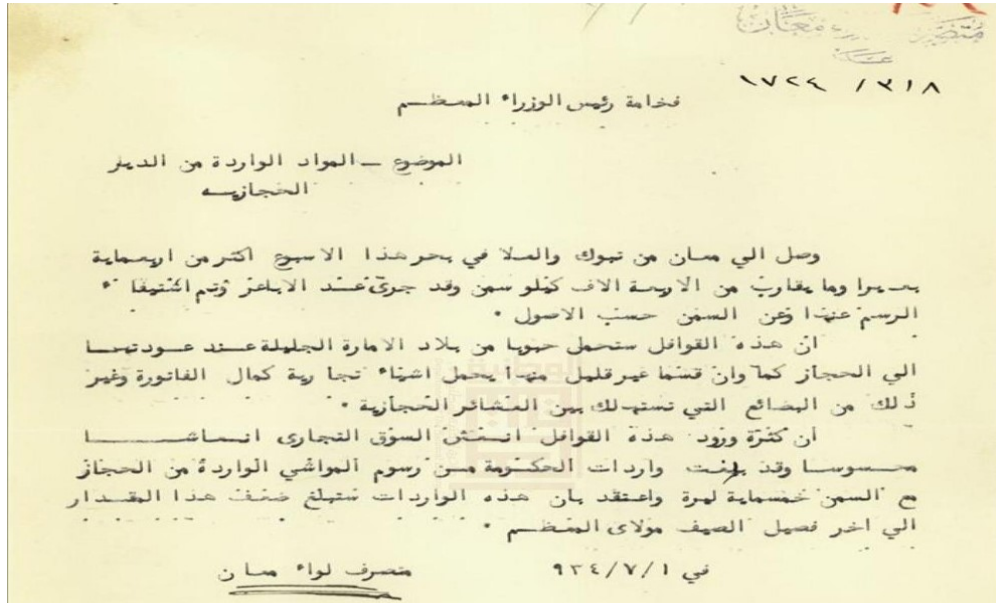 متصرف معان
٣١٨/ ١٧٢٤
فخامة رئيس الوزراء المعظم
الموضوع – المواد الواردة من الديار
الحجازيه
وصل الي معان من تبوك والعلا في بحر هذا الاسبوع اكثر من اربعماية
بعيرا وما يقارب من الاربعة الاف كيلو سمن وقد جرى عد الاباعر وتم اشتيفاء
الرسم عنها وعن السمن حسب الاصول .
ان هذه القوافل ستحمل حبوبا من بلاد الامارة الجليلة عند عودتها
الي الحجاز كما وان قسما غير قليل منها يحمل اشياء تجارية كمال الفاتورة وغير
ذلك من البضائع التي تستهلك بين العشائر الحجازية .
ان كثرة ورود هذه القوافل انعش السوق التجارى انعاشا
محسوسا وقد بلغت واردات الحكومة من رسوم المواشي الواردة من الحجاز
مع السمن خمسماية ليرة واعتقد بان هذه الواردات ستبلغ ضعف هذا المقدار
الي اخر فصيل الصيف مولاى المعظم .
في ٩٣٤/٧/١
متصرف لواء معان